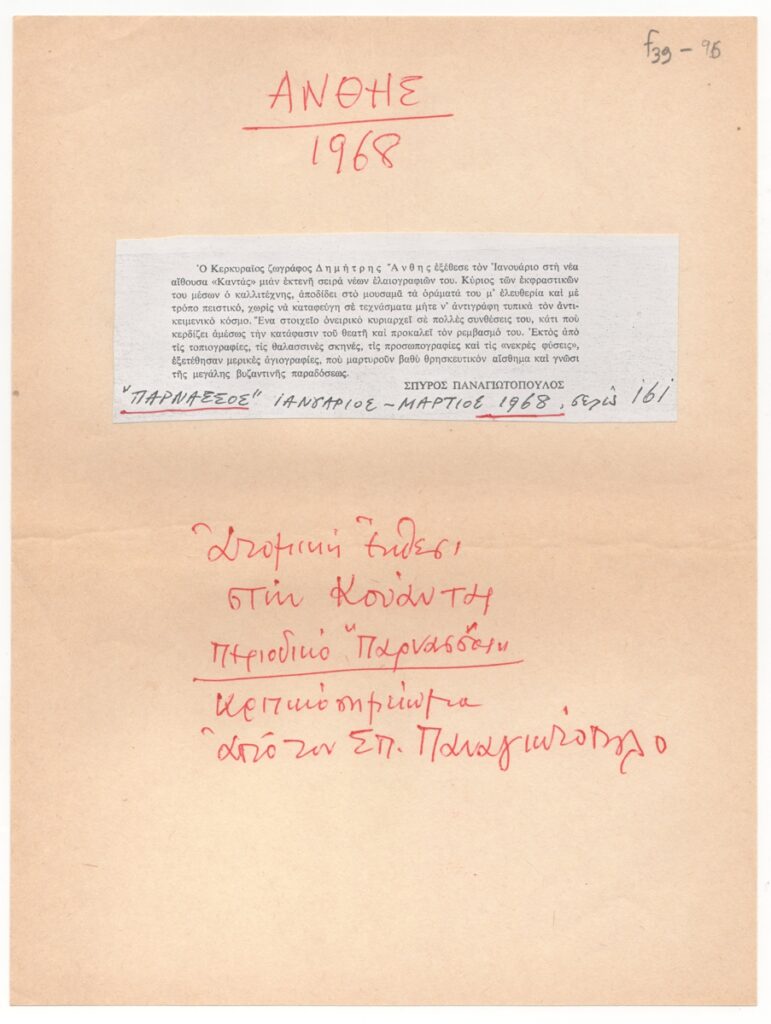 f39 - 96
ΑΝΘΗΣ
1968
Ὁ Κερκυραῖος ζωγράφος Δημήτρης Ἄνθης ἐξέθεσε τὸν Ἰανουάριο στὴ νέα
αἴθουσα «Καντάς» μιὰν ἐκτενῆ σειρὰ νέων ἐλαιογραφιῶν του. Κύριος τῶν ἐκφραστικῶν
του μέσων ὁ καλλιτέχνης, ἀποδίδει στὸ μουσαμᾶ τὰ ὁράματά του μ' ἐλευθερία καὶ μὲ
τρόπο πειστικό, χωρὶς νὰ καταφεύγη σὲ τεχνάσματα μήτε ν' ἀντιγράφη τυπικὰ τὸν ἀντι-
κειμενικὸ κόσμο. Ἕνα στοιχεῖο ὀνειρικὸ κυριαρχεῖ σὲ πολλὲς συνθέσεις του, κάτι ποὺ
κερδίζει ἀμέσως τὴν κατάφασιν τοῦ θεατῆ καὶ προκαλεῖ τὸν ρεμβασμό του. Ἐκτὸς ἀπὸ
τὶς τοπιογραφίες, τὶς θαλασσινὲς σκηνές, τὶς προσωπογραφίες καὶ τὶς «νεκρὲς φύσεις»,
ἐξετέθησαν μερικὲς ἁγιογραφίες, ποὺ μαρτυροῦν βαθὺ θρησκευτικὸν αἴσθημα καὶ γνῶσι
τῆς μεγάλης βυζαντινῆς παραδόσεως.
ΣΠΥΡΟΣ ΠΑΝΑΓΙΩΤΟΠΟΥΛΟΣ
"ΠΑΡΝΑΣΣΟΣ" ΙΑΝΟΥΑΡΙΟΣ - ΜΑΡΤΙΟΣ 1968, σελὶς 161
Ἀτομικὴ Ἔκθεσι
στὴν Κουάντας
Περιοδικό "Παρνασσός"
κριτικό σημείωμα
ἀπὸ τὸν Σπ. Παναγιωτόπουλο